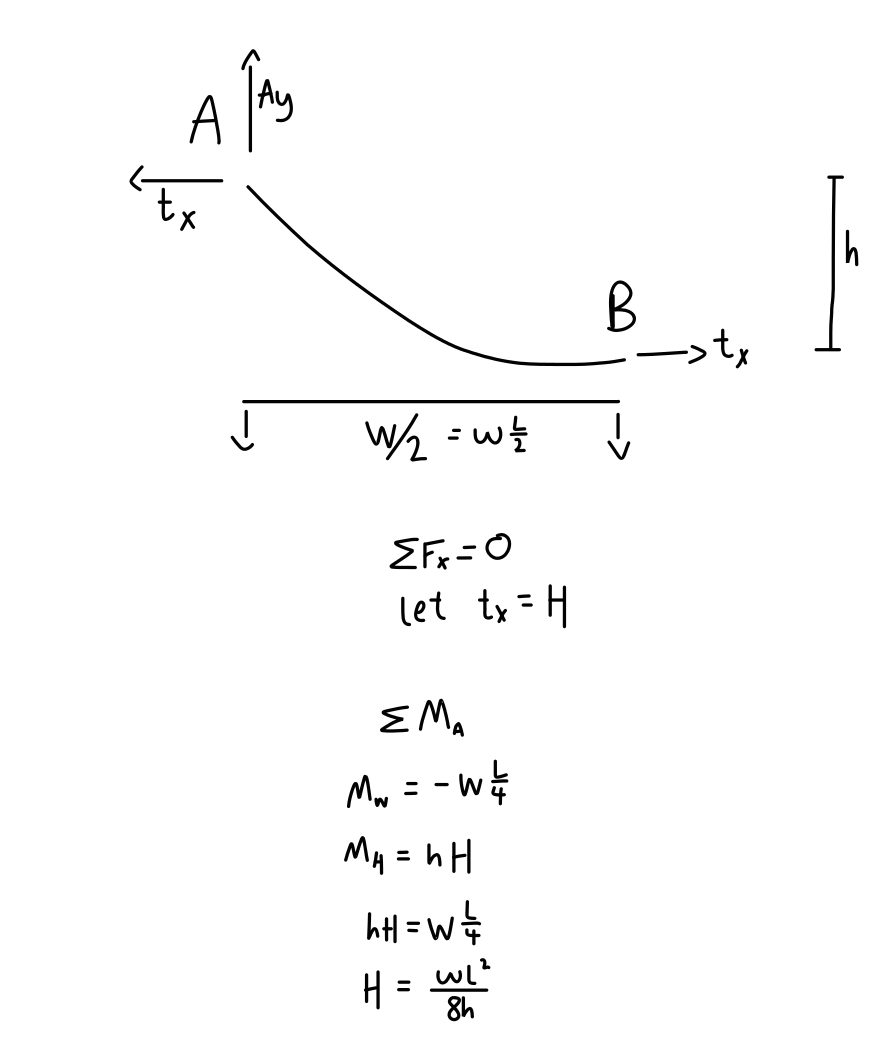 A
Ay
tx
h
B
tx
W/2 = w L/2
ΣFx = 0
let tx = H
Σ MA
Mw = - W L/4
MH = hH
hH = W L/4
H = wL²/8h